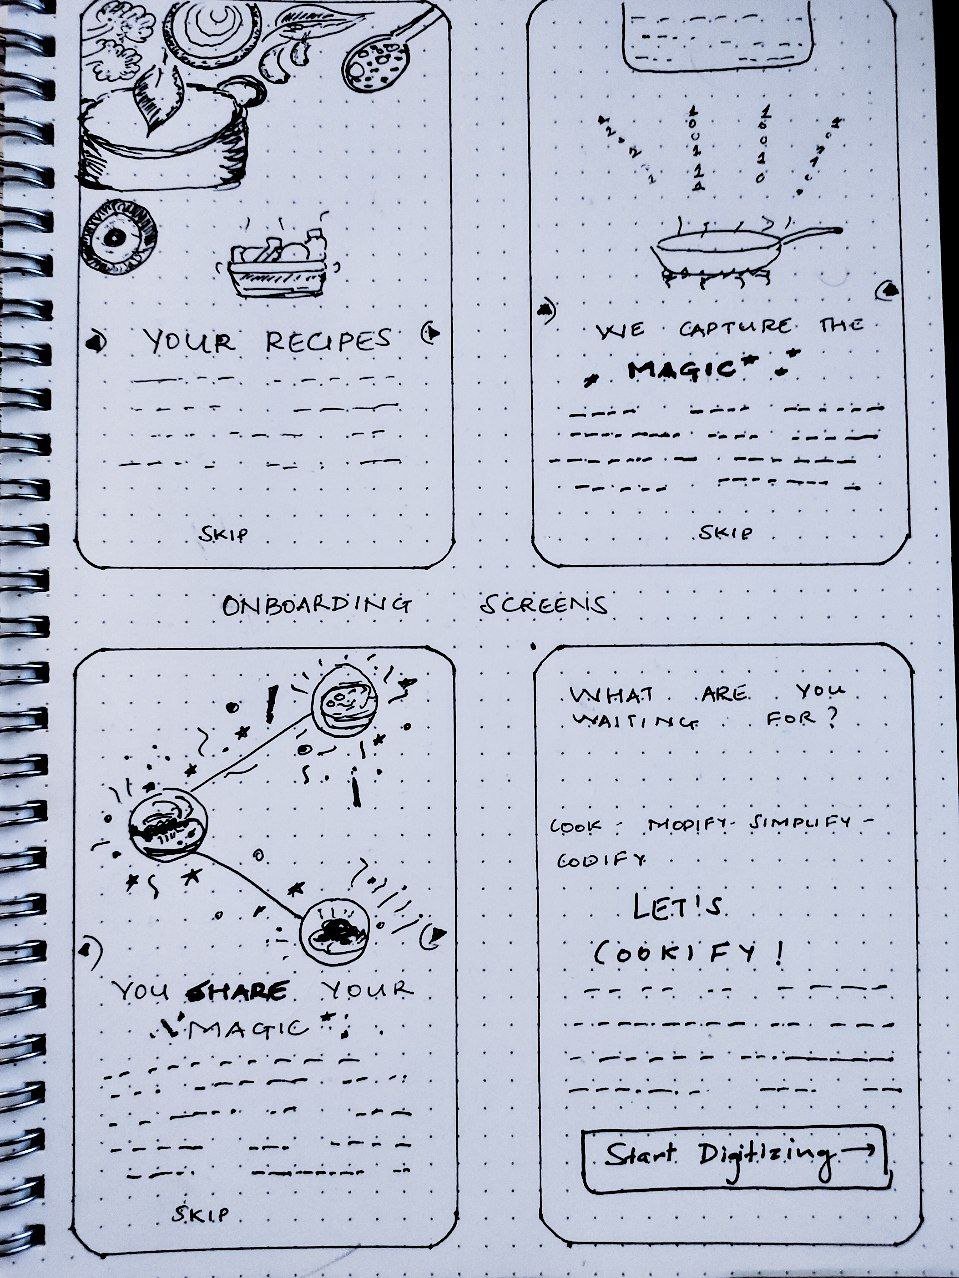 YOUR RECIPES
SKIP
WE CAPTURE THE
MAGIC
SKIP
ONBOARDING SCREENS
YOU SHARE YOUR
MAGIC
SKIP
WHAT ARE YOU
WAITING FOR?
COOK - MODIFY - SIMPLIFY -
CODIFY
LET'S
COOKIFY!
Start Digitizing →